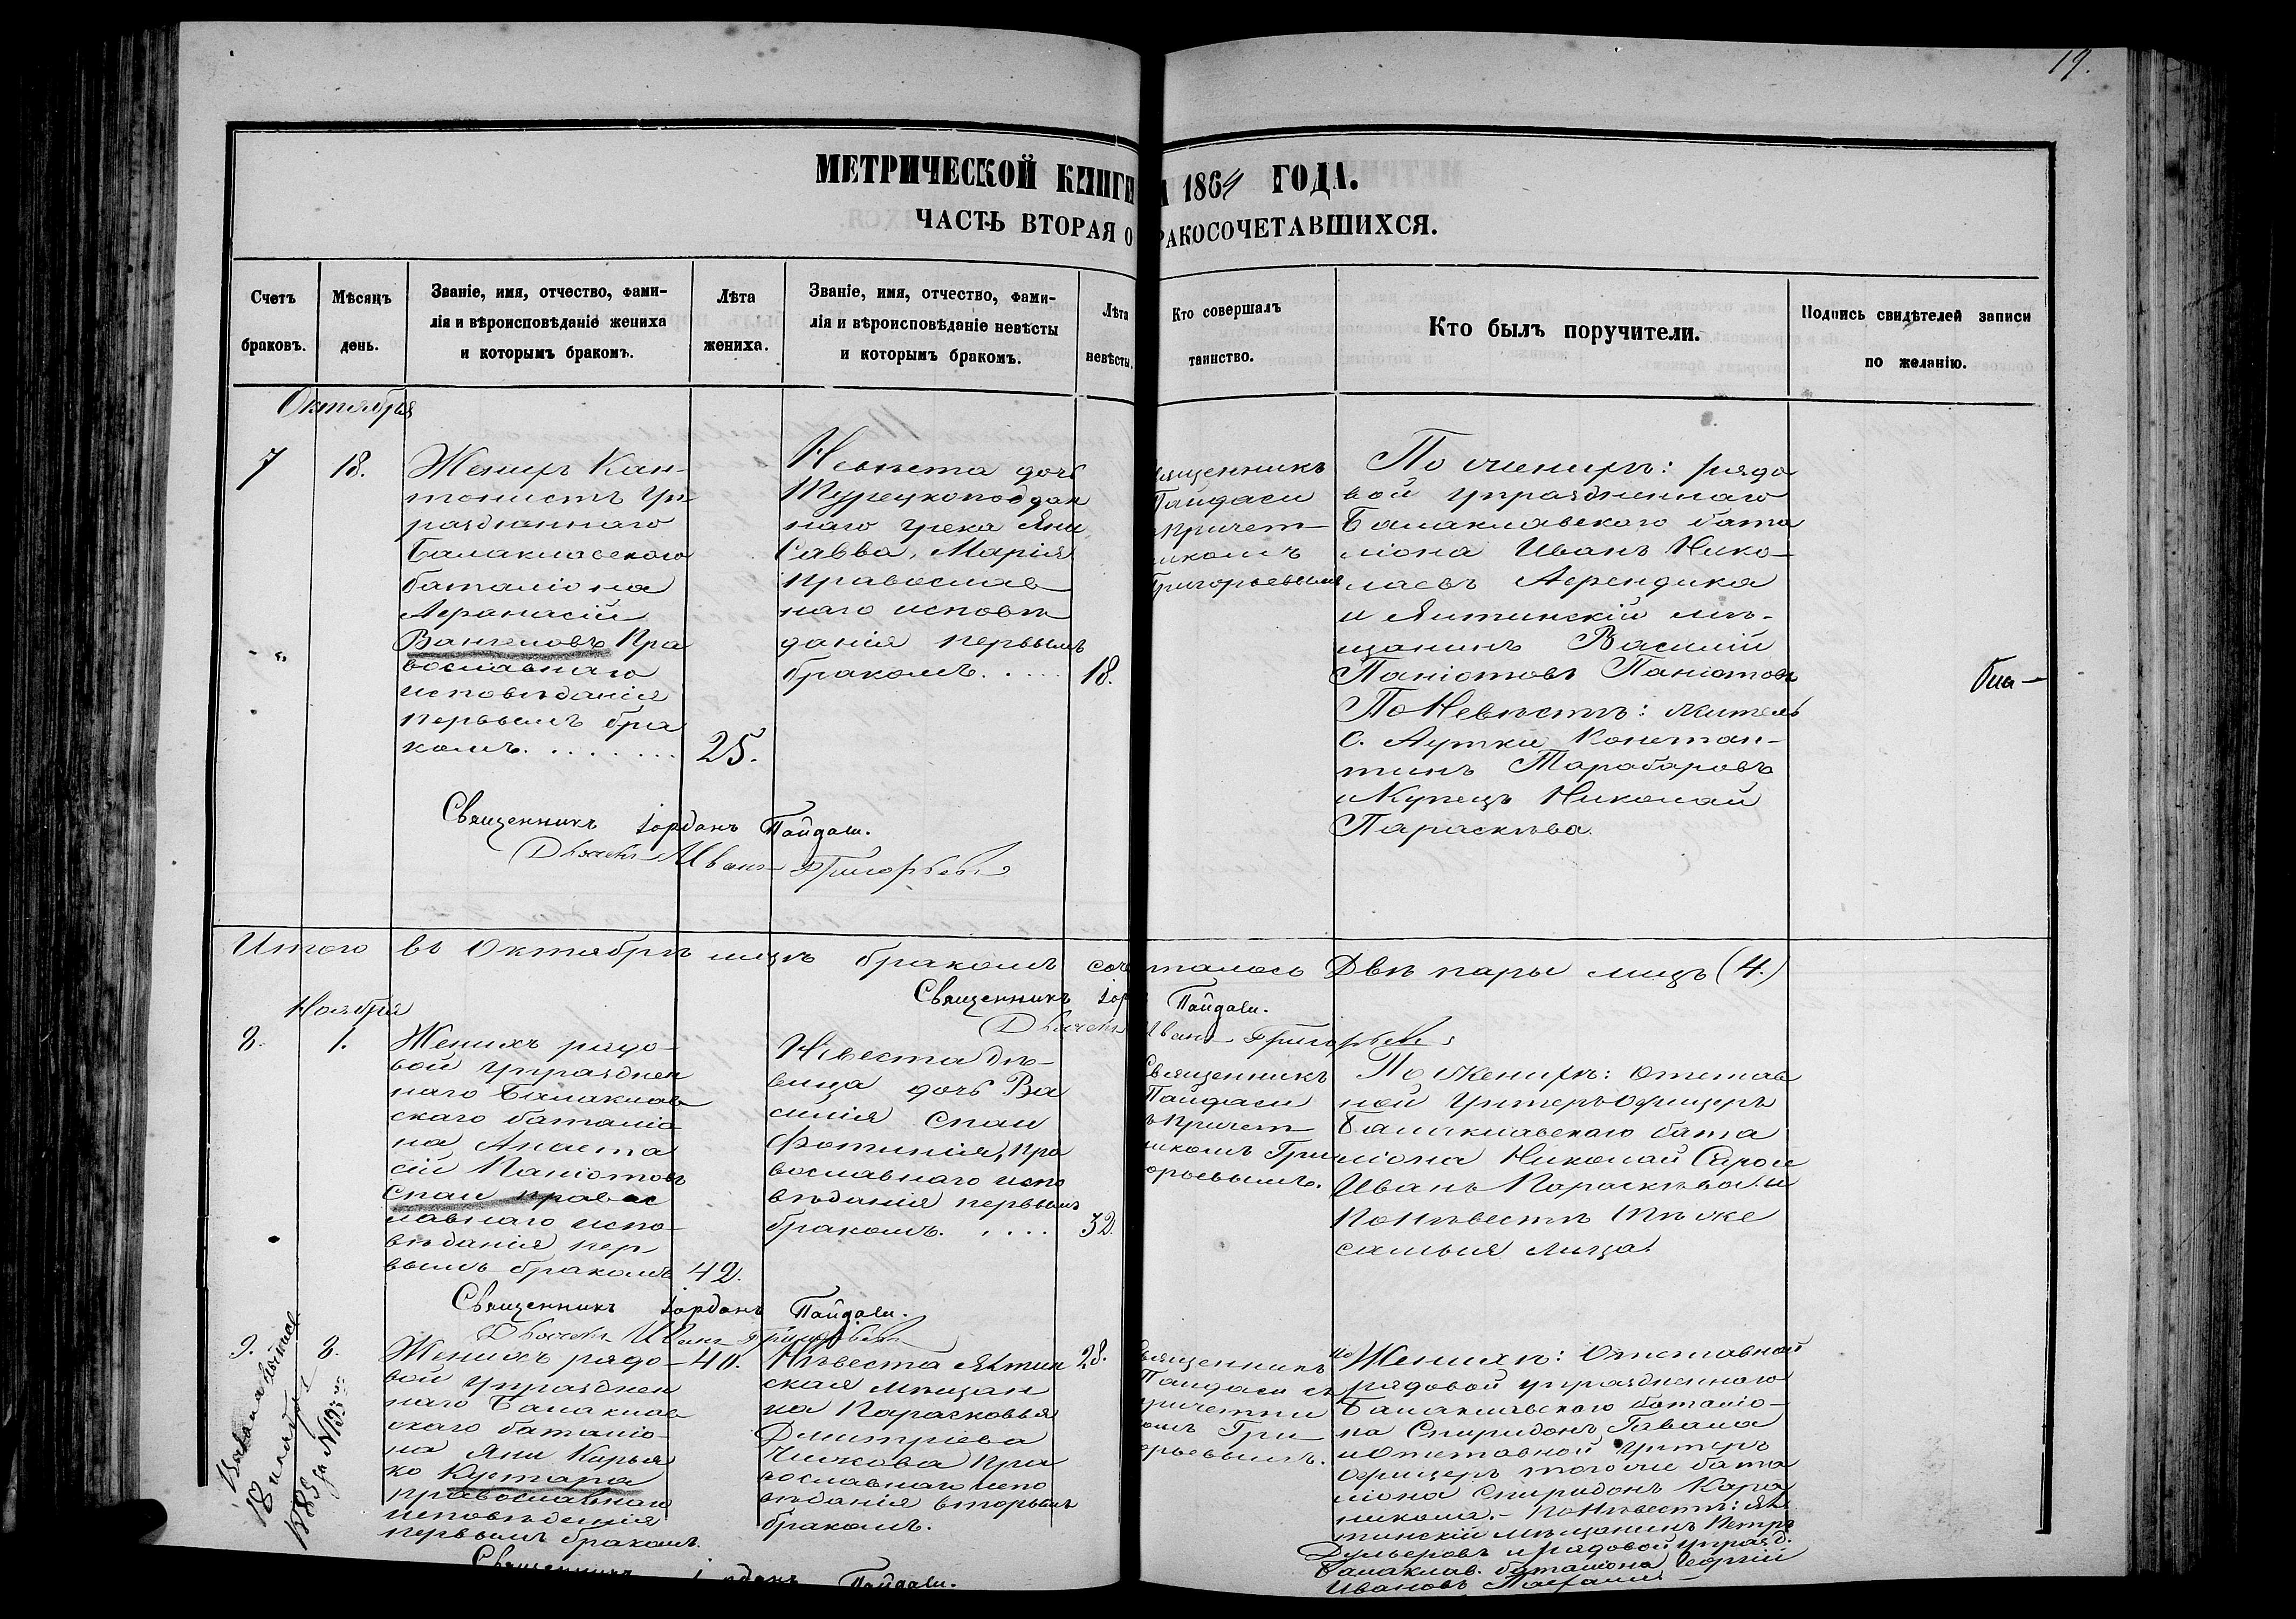 19.
МЕТРИЧЕСКОЙ КНИГИ 1864 ГОДА.
ЧАСТЬ ВТОРАЯ О РАКОСОЧЕТАВШИХСЯ.
Счетъ
браковъ.
Мѣсяцъ
день.
Званіе, имя, отчество, фами-
лія и вѣроисповѣданіе жениха
и которымъ бракомъ.
Лѣта
жениха.
Званіе, имя, отчество, фами-
лія и вѣроисповѣданіе невѣсты
и которымъ бракомъ.
Лѣта
невѣсты.
Кто совершалъ
таинство.
Кто былъ поручители.
Подпись свидѣтелей записи
по желанію.
Октября
7
18.
Женихъ Кан-
тонистъ Уп-
раздненнаго
Балаклавскаго
баталіона
Афанасій
Вангеловъ Пра
вославнаго
исповѣданія
первымъ бра
комъ.
25.
Невѣста дочь
Турецкоподдан
наго грека Яни
Савва, Марія
православ
наго исповѣ
данія первымъ
бракомъ.
18.
ященникъ
Пайдаси
причет
комъ
Григорьевымъ
По женихѣ: рядо
вой упраздненнаго
Балаклавскаго бата
ліона Иванъ Нико-
лаевъ Афендика
и Ялтинскій мѣ-
щанинъ Василій
Паніотовъ Паніотовъ
По Невѣстѣ: житель
с. Аутки Констан-
тинъ Тарабаровъ
и Купецъ Николай
Параскѣва.
Священникъ Іорданъ Пайдаси.
Дьячекъ Иванъ Григорьевъ
Итого въ Октябрѣ мцѣ бракомъ сочеталось Двѣ пары лицъ (4.)
Священникъ Іор Пайдаси.
Дьячекъ Иванъ Григорьевъ
Ноября
8.
1.
Женихъ рядо-
вой Упразднен
наго Балаклав
скаго баталіо
на Анаста
сій Паніотовъ
Спаи правос
лавнаго испо-
вѣданія пер
вымъ бракомъ
42.
Невѣста дѣ-
вица дочь Ва
силія Спаи
Фотинія, пра
вославнаго испо
вѣданія первымъ
бракомъ.
32.
Священникъ
Пайдаси
причет
комъ Гри
орьевымъ.
По Женихѣ: отстав
ной Унтеръ-Офицеръ
Балаклавскаго бата
ліона Николай
Иванъ Параскѣва. и
По Невѣстѣ тѣ же
самыя лица.
Священникъ Іорданъ Пайдаси.
Дьячекъ Иванъ Григорьевъ
9.
8.
18 ноября
1885 за №193
Женихъ рядо-
вой Упразднен
наго Балаклав
скаго баталіо-
на Яни Кирья
ко
православнаго
исповѣданія
первымъ бракомъ.
40.
Невѣста Ялтин
ская мѣщан
ка Парасковья
Димитріева
Чижова пра
вославнаго испо
вѣданія вторымъ
бракомъ.
28.
вященникъ
Пайдаси съ
ричетни
омъ Гри
орьевымъ.
По Женихѣ: Отставной
рядовой упраздненнаго
Балаклавскаго баталіо-
на Спиридонъ Гавала
и Отставной Унтеръ
офицеръ того же бата
ліона Спиридонъ Кара
никола. - По Невѣстѣ: Ял
тинскій мѣщанинъ Петръ
и рядовой упразд.
Балаклав. баталіона Георгій
Ивановъ
Священникъ Іорданъ Пайдаси.